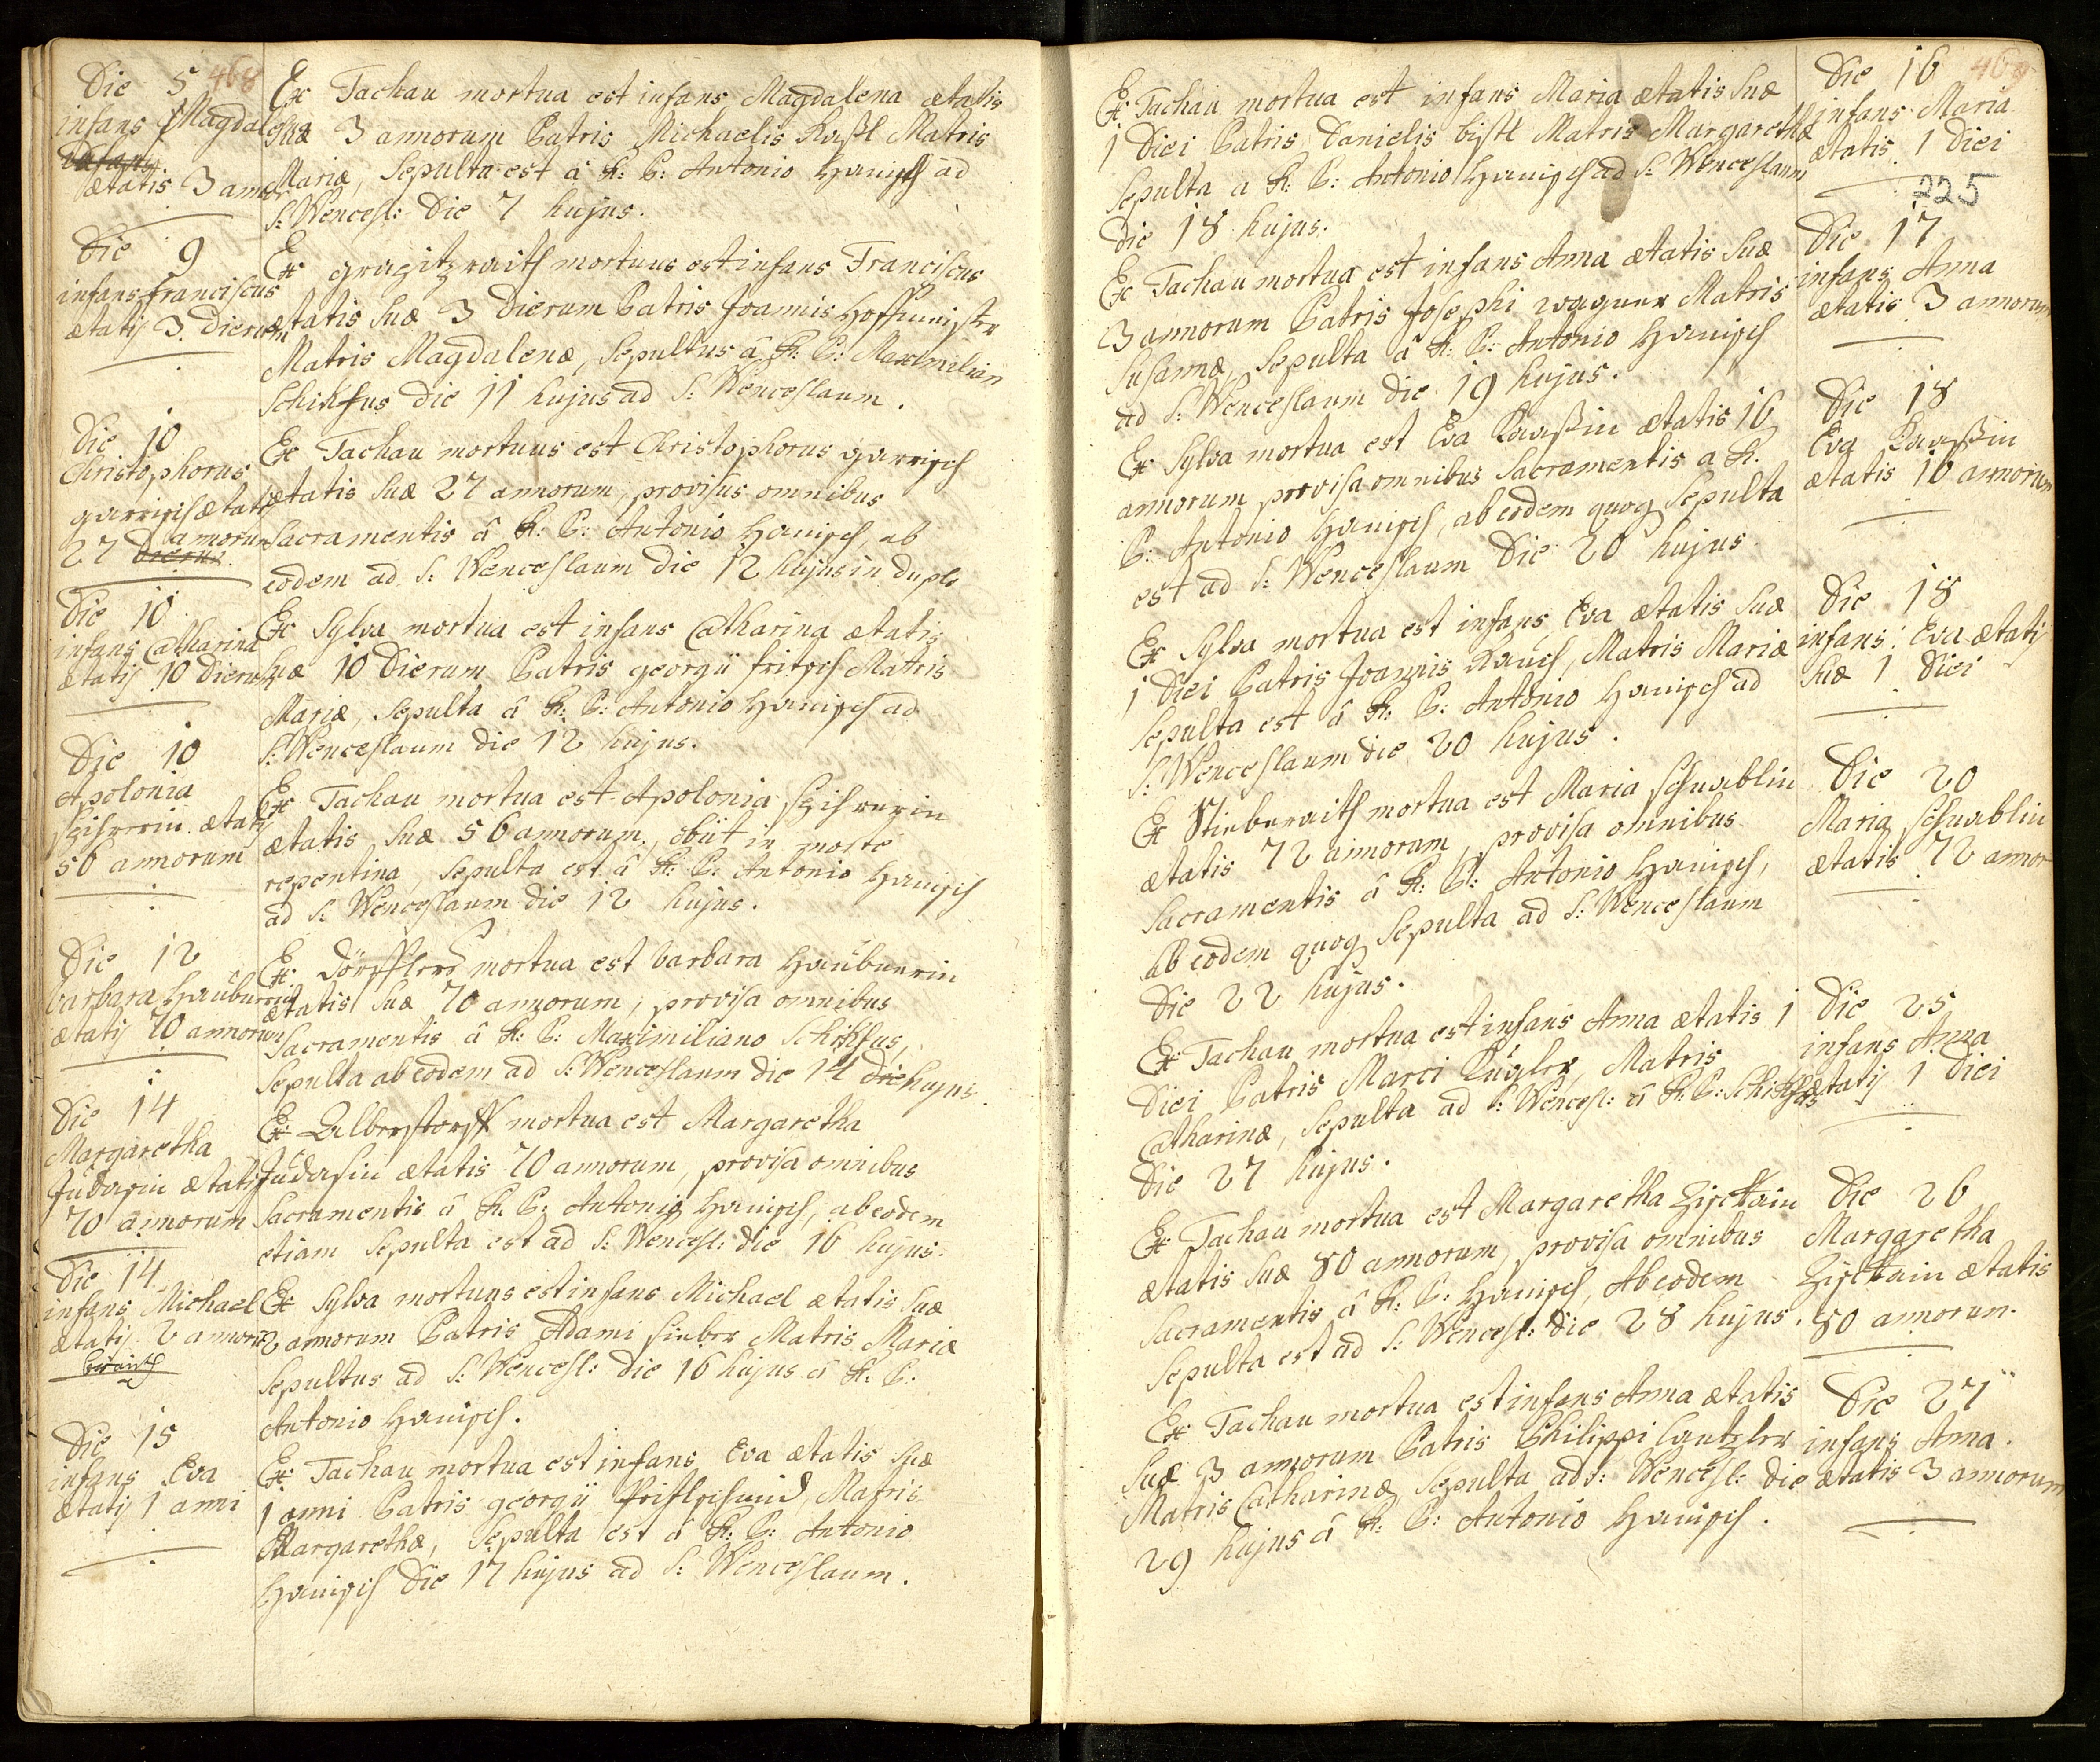 468
Die 5
infans Magdal
ætatis 3 annor
Ex Tachau mortua est infans Magdalena ætatis
suæ 3 annorum Patris Michaelis Kastl Matris
Mariæ, Sepulta est â R: P: Antonio Hanisch ad
S: Wencesl: Die 7 hujus.
Die 9
infans franciscus
ætatis 3 Dierum
Ex mortuus est infans Franciscus
ætatis suæ 3 Dierum Patris Joannis Hoffmeister
Matris Magdalenæ, Sepultus â R: P: Maximilian
Schikfus Die 11 hujus ad S: Wenceslaum.
Die 10
Christophorus
garrisch ætatis
annorum
27 Dierum
Ex Tachau mortuus est Christophorus garrisch
ætatis suæ 27 annorum, provisus omnibus
Sacramentis â R: P: Antonio Hanisch ab
eodem ad S: Wenceslaum Die 12 hujus in duplo
Die 10
infans Catharina
ætatis 10 Dierum
Ex Sylva mortua est infans Catharina ætatis
suæ 10 Dierum Patris georgii fritsch Matris
Mariæ, Sepulta â R: P: Antonio Hanisch ad
S: Wenceslaum Die 12 hujus.
Die 10
Apolonia
ætatis
56 annorum
Ex Tachau mortua est Apolonia
ætatis suæ 56 annorum, obiit in morte
repentina, Sepulta est â R: P: Antonio Hanisch
ad S: Wenceslaum die 12 hujus.
Die 12
barbara Haubnerin
ætatis 70 annorum
Ex mortua est barbara Haubnerin
ætatis suæ 70 annorum, provisa omnibus
Sacramentis â R: P: Maximiliano Schikfus,
Sepulta ab eodem ad S: Wenceslaum Die 14 die hujus.
Die 14
Margaretha
Judasin ætatis
70 annorum
Ex Albersstorff mortua est Margaretha
Judasin ætatis 70 annorum, provisa omnibus
Sacramentis â R: P: Antonio Hanisch, ab eodem
etiam Sepulta est ad S: Wencesl: Die 16 hujus.
Die 14
infans Michael
ætatis 2 annoru
Ex Sylva mortuus est infans Michael ætatis suæ
2 annorum Patris Adami sieber Matris Mariæ
Sepultus ad S: Wencesl: Die 16 hujus â R: P:
Antonio Hanisch.
Die 15
infans Eva
ætatis 1 anni
Ex Tachau mortua est infans Eva ætatis suæ
1 anni Patris georgii Matris
Margarethæ, Sepulta est â R: P: Antonio
Hanisch Die 17 hujus ad S: Wenceslaum.
469
Ex Tachau mortua est infans Maria ætatis suæ
1 Diei Patris Danielis bistl Matris Margarethæ
Sepulta a R: P: Antonio Hanisch ad S: Wenceslaum
Die 18 hujus.
Die 16
infans Maria
ætatis 1 Diei
225
Ex Tachau mortua est infans Anna ætatis suæ
3 annorum Patris Josephi wagner Matris
Susannæ, Sepulta â R: P: Antonio Hanisch
ad S: Wenceslaum die 19 hujus.
Die 17
infans Anna
ætatis 3 annorum
Ex Sylva mortua est Eva Kaaßin ætatis 16
annorum provisa omnibus Sacramentis a R.
P: Antonio Hanisch, ab eodem quoq Sepulta
est ad S: Wenceslaum Die 20 hujus.
Die 18
Eva Kaaßin
ætatis 16 annorum
Ex Sylva mortua est infans Eva ætatis suæ
1 Diei Patris Joannis Matris Mariæ
Sepulta est â R: P: Antonio Hanisch ad
S: Wenceslaum die 20 hujus.
Die 18
infans Eva ætatis
suæ 1 Diei
Ex mortua est Maria schwablin
ætatis 72 annorum, provisa omnibus
Sacramentis â R: P: Antonio Hanisch,
ab eodem quoq Sepulta ad S: Wenceslaum
Die 22 hujus.
Die 20
Maria schwablin
ætatis 72 annor
Ex Tachau mortua est infans Anna ætatis 1
Diei Patris Marci Kugler, Matris
Catharinæ, Sepulta ad S: Wencesl: â R: P: Schikfus
Die 27 hujus.
Die 25
infans Anna
ætatis 1 Diei
Ex Tachau mortua est Margaretha
ætatis suæ 80 annorum, provisa omnibus
Sacramentis â R: P: Hanisch, ab eodem
Sepulta est ad S: Wencesl: Die 28 hujus.
Die 26
Margaretha
ætatis
80 annorum.
Ex Tachau mortua est infans Anna ætatis
suæ 3 annorum Patris Philippi Cantzler
Matris Catharinæ, Sepulta ad S: Wencesl: Die
29 hujus â R: P: Antonio Hanisch.
Die 27
infans Anna.
ætatis 3 annorum